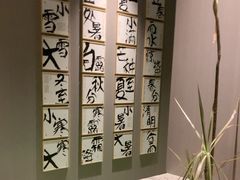 春
雨水
春分
清明
谷雨
小满
芒种
夏至
小暑
大暑
处暑
白露
秋分
寒露
小雪
大雪
冬至
小寒
大寒